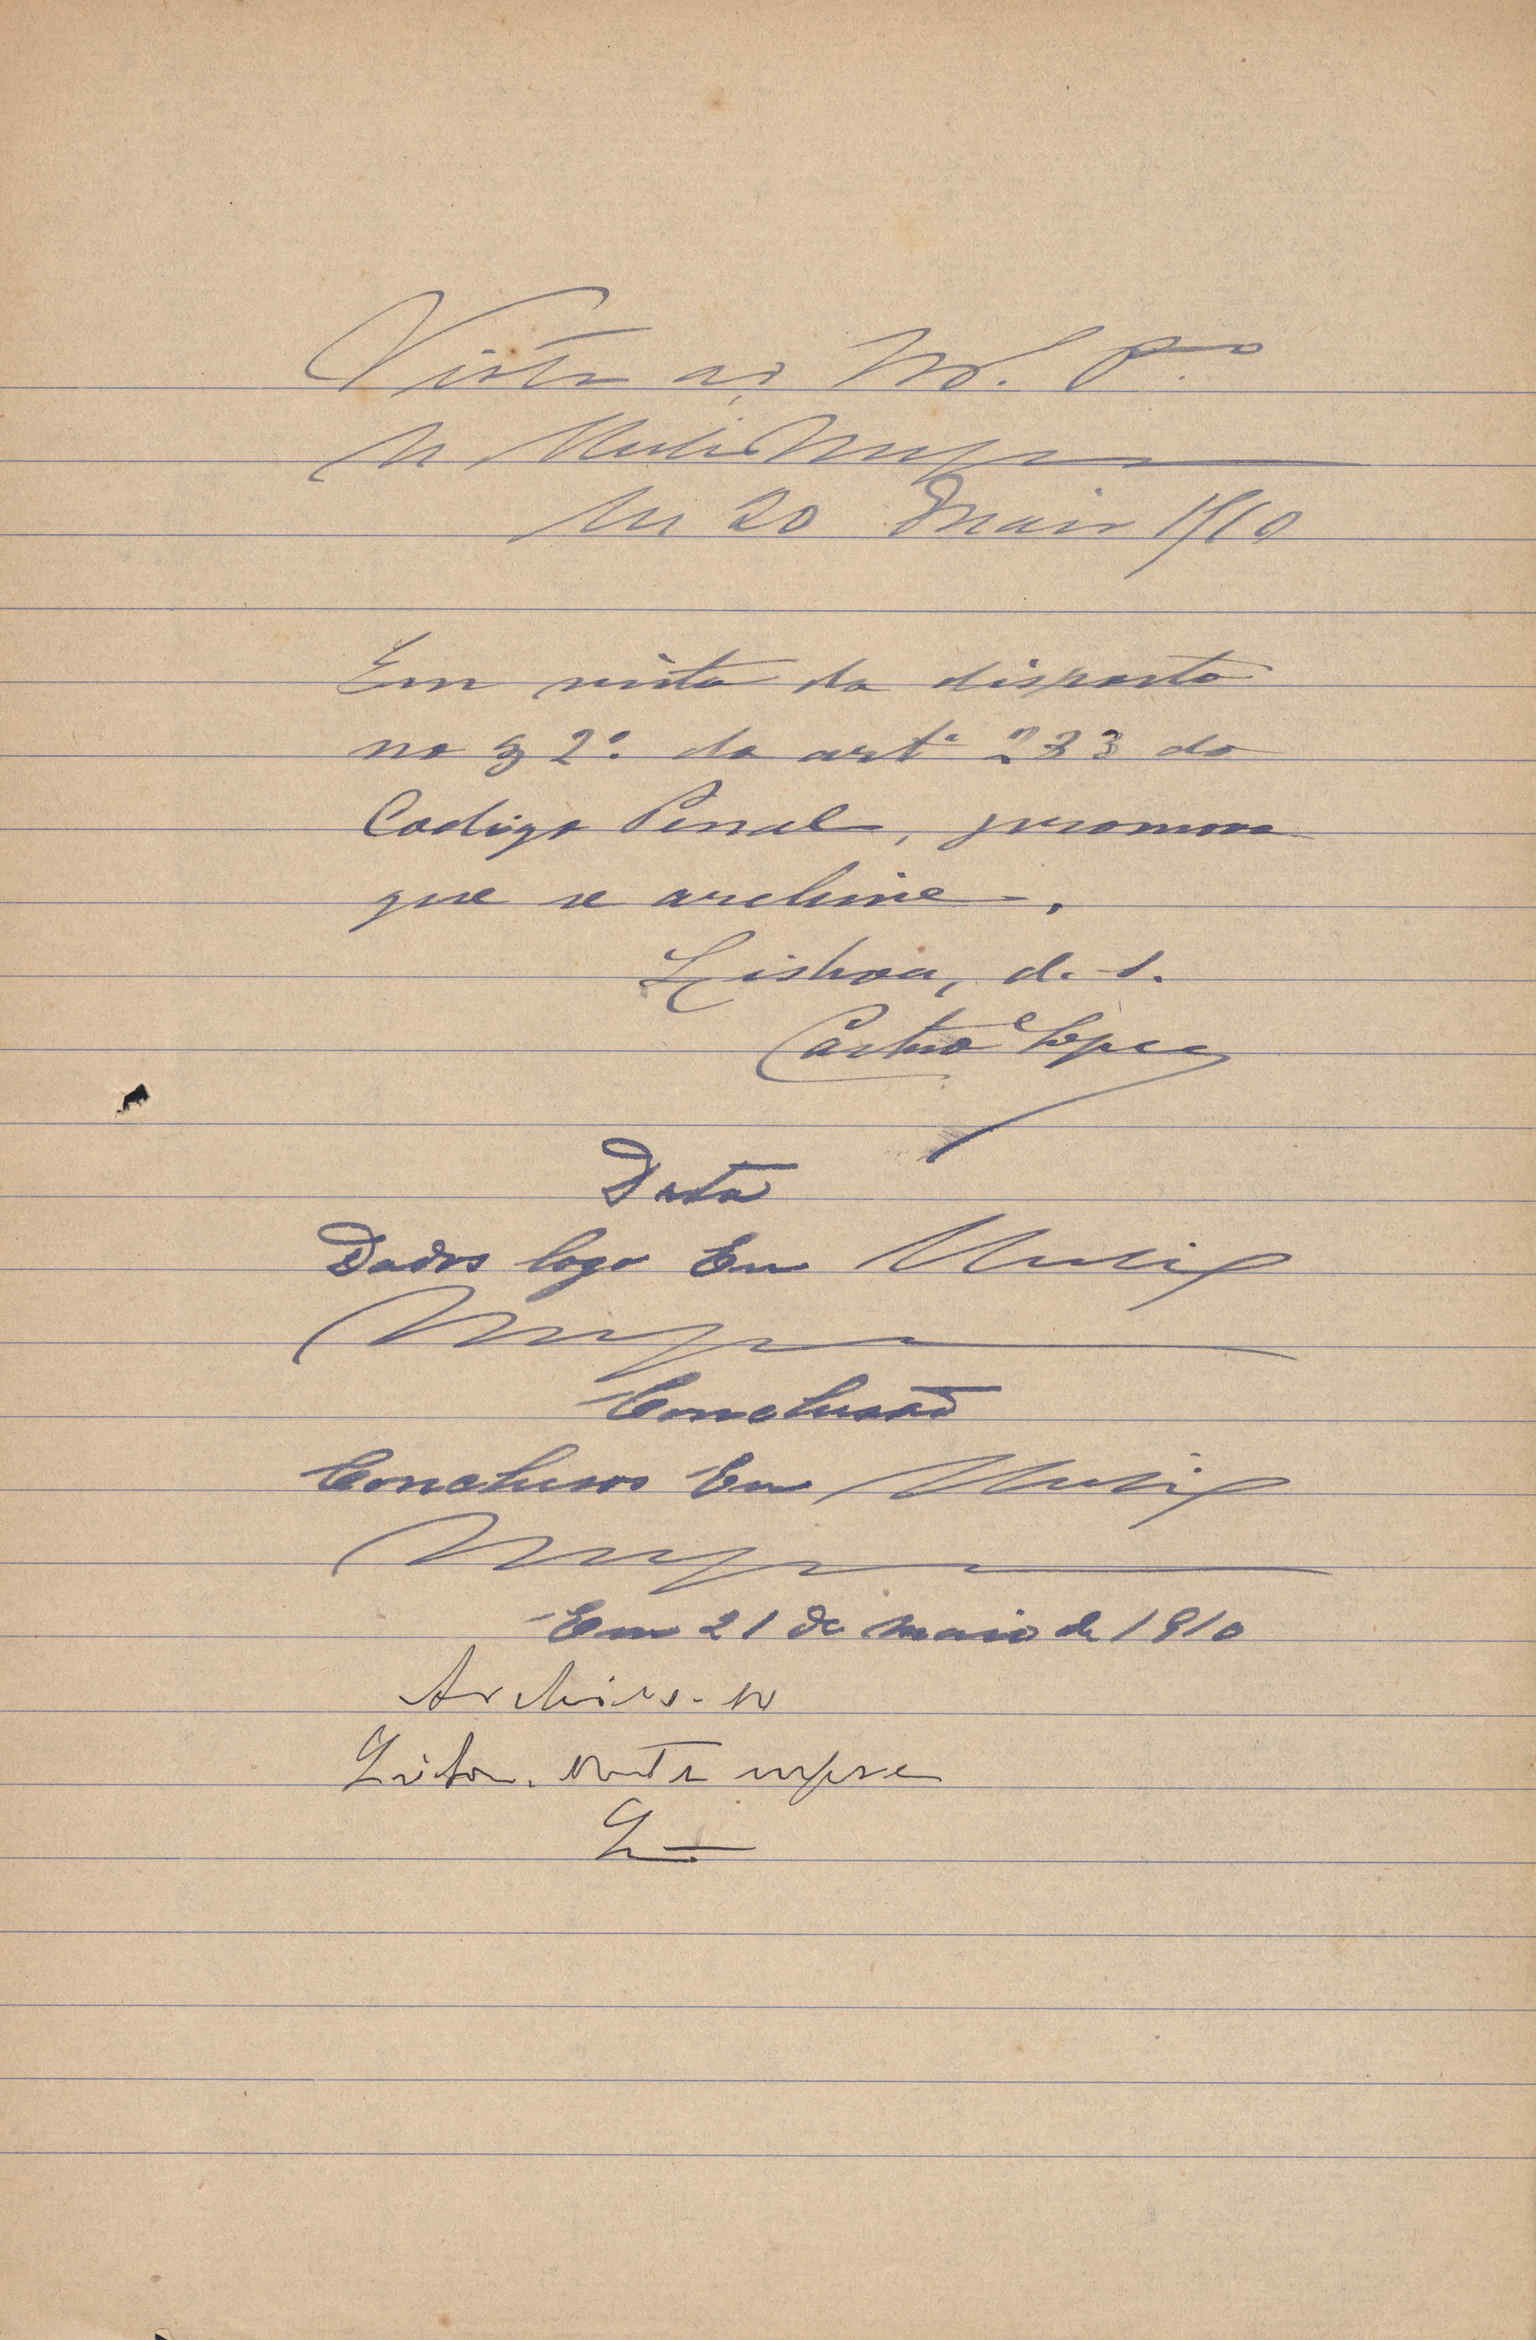 Vista ao M. P.co
Em 20 Maio 1910
Em vista do disposto
no § 2.º do art.º 233 do
Codigo Penal, promovo
que se archive.
Lisboa, d. s.
Castro e Lopes
Data
Dados logo Eu
Conclusão
Conclusos Eu
Em 21 de maio de 1910
Archive-se
Lisboa,